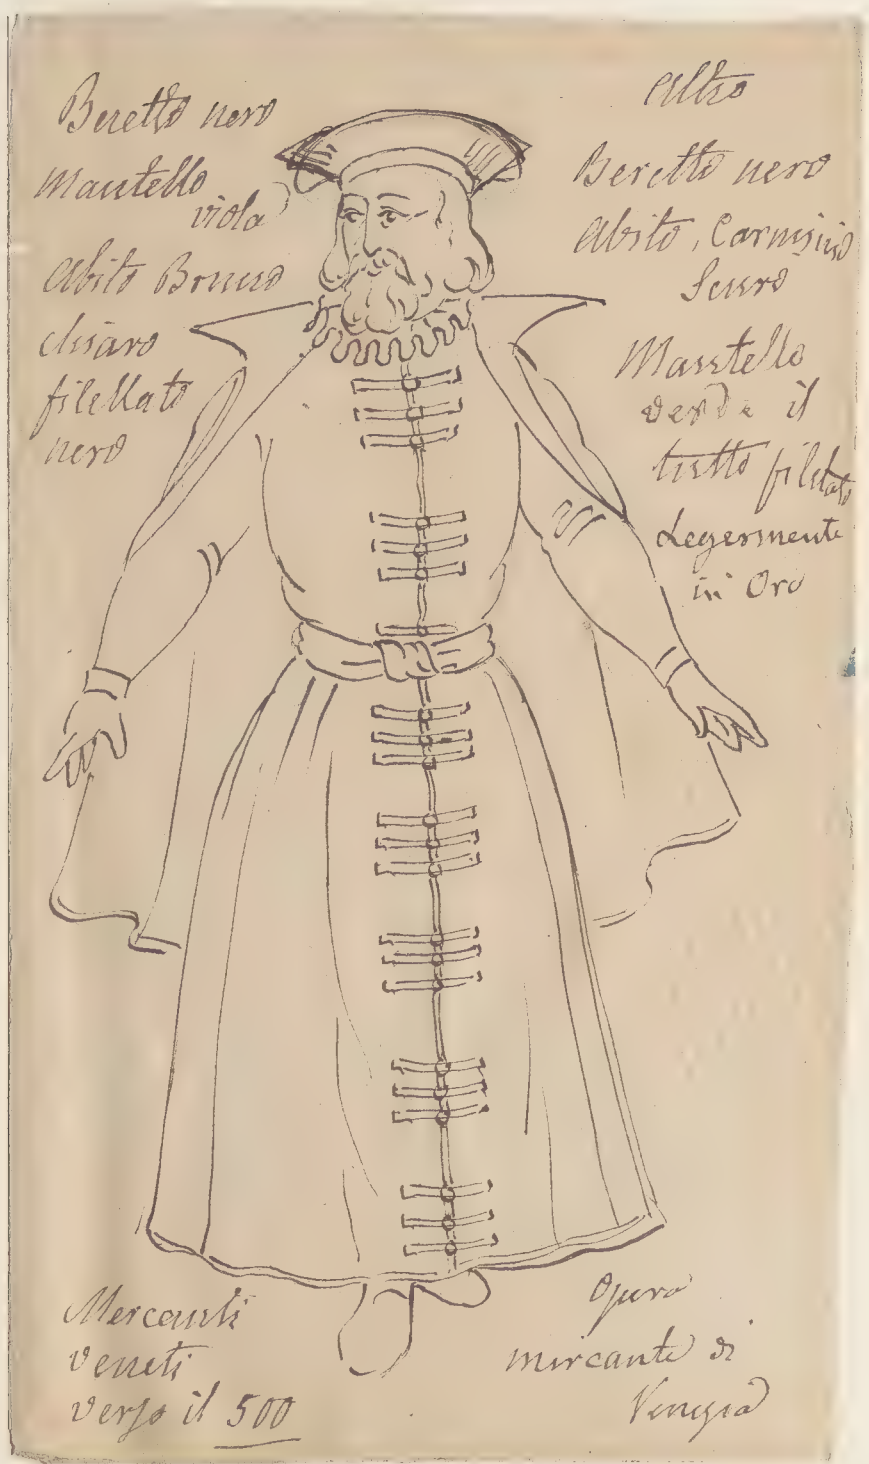 Beretto nero
Mantello
viola
Abito Bruno
chiaro
filettato
nero
Altro
Beretto nero
Abito, Carmisino
Scuro
Mantello
verde il
tutto filetato
Legermente
in Oro
Mercanti
veneti
verso il 500
Opera
mercante di
Venezia